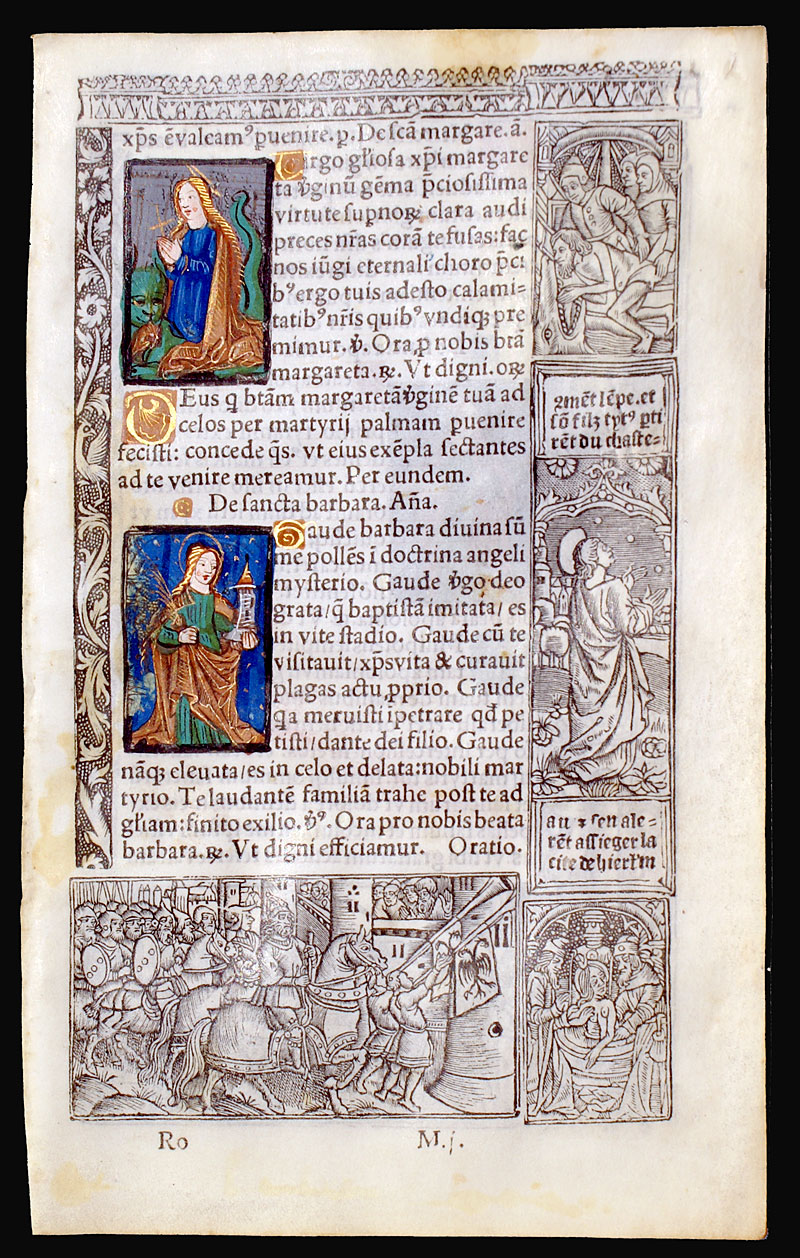 xp̄s ēvaleamꝰ ꝑuenire. ꝑ. De scā margare. ā.
Virgo gl̄iosa xp̄i margare
ta v̄ginū gēma p̄ciosissima
virtute supnoꝝ clara audi
preces nr̄as corā te fusas: fac
nos iūgi eternali choro p̄ci
bꝰ ergo tuis adesto calami=
tatibꝰ nr̄is quibꝰ vndiqꝫ pre
mimur. ℣. Ora ꝓ nobis btā
margareta. ℟. Vt digni. oꝝ
Deus q btām margaretā v̄ginē tuā ad
celos per martyrij palmam puenire
fecisti: concede q̄s. vt eius exēpla sectantes
ad te venire mereamur. Per eundem.
De sancta barbara. Añа.
Gaude barbara diuina sū
me pollēs ī doctrina angeli
mysterio. Gaude v̄go deo
grata/ q̄ baptistā imitata/ es
in vite stadio. Gaude cū te
visitauit/ xp̄s vita & curauit
plagas actu ꝓprio. Gaude
qa meruisti ipetrare qd̄ pe
tisti/ dante dei filio. Gaude
nāqꝫ eleuata/ es in celo et delata: nobili mar
tyrio. Te laudantē familiā trahe post te ad
gl̄iam: finito exilio. ℣ꝰ. Ora pro nobis beata
barbara. ℟. Vt digni efficiamur. Oratio.
ꝯmēt lēpe. et
sō filz tytꝰ ꝑti
rēt du chaste=
au ⁊ sen ale=
rēt assieger la
cite de hierl̄m
Ro M.j.